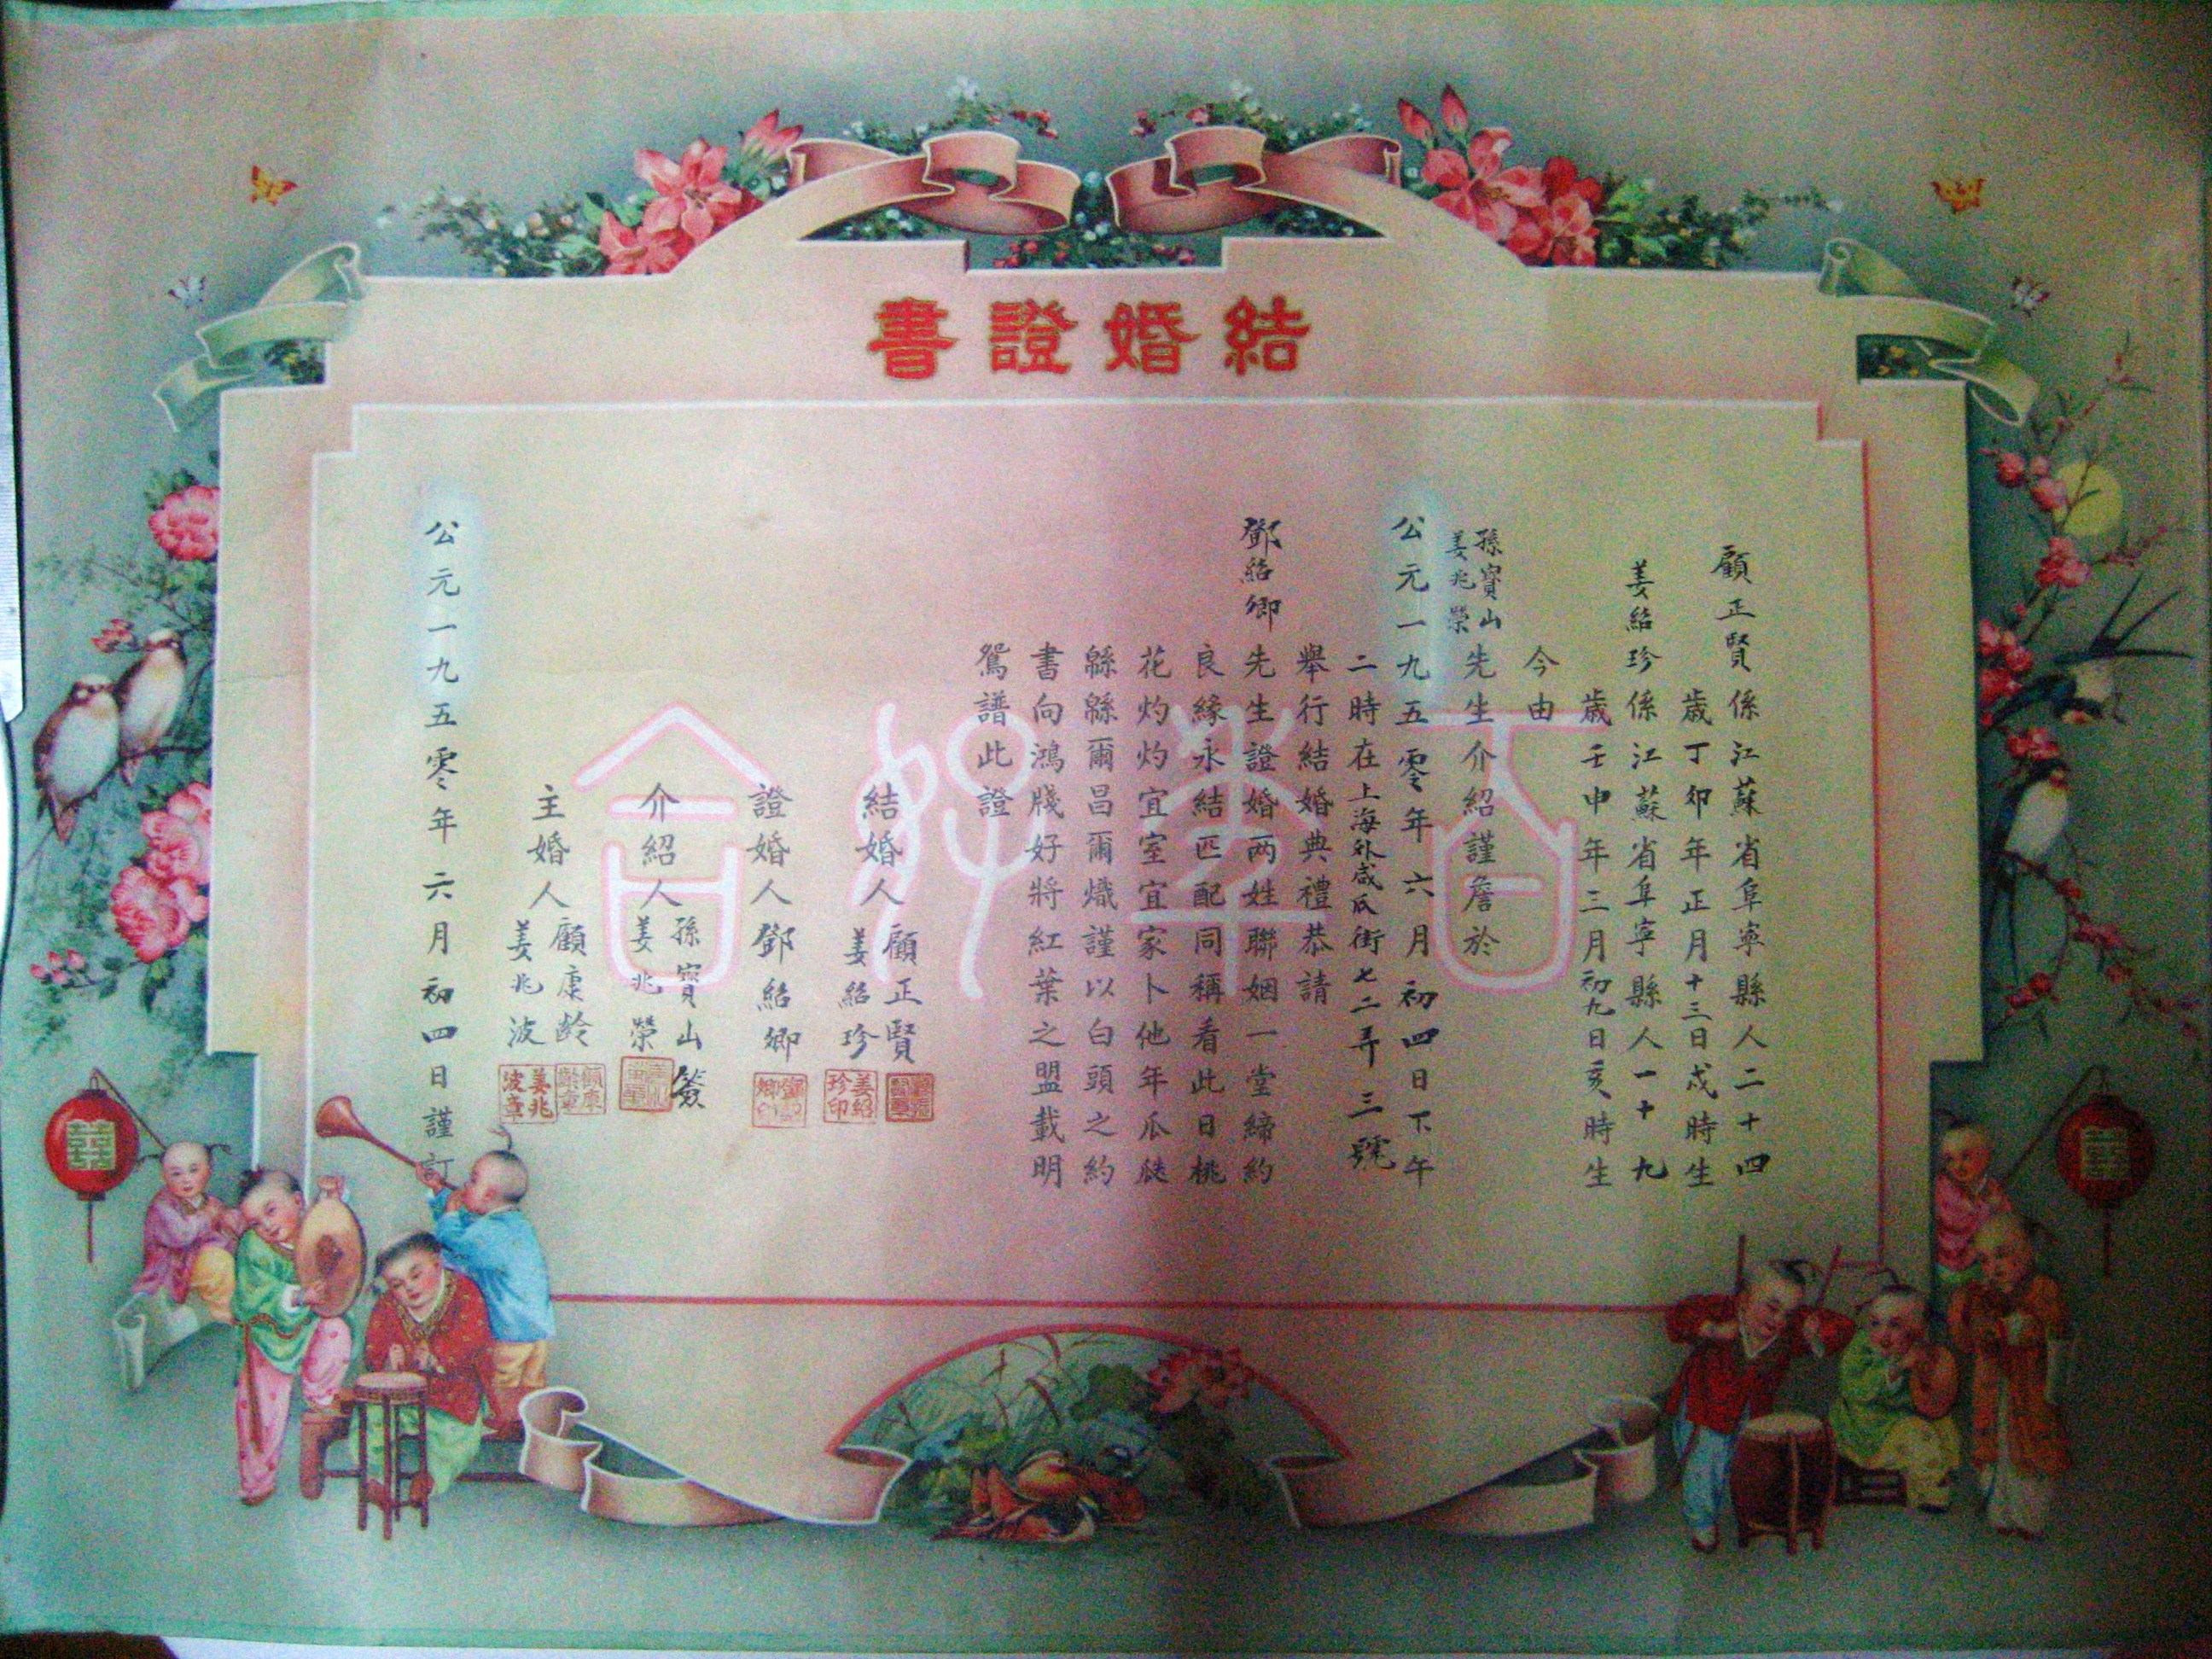 結婚證書
百年好合
顧正賢係江蘇省阜寧縣人二十四
歲丁卯年正月十三日戌時生
姜紹珍係江蘇省阜寧縣人一十九
歲壬申年三月初九日亥時生
今由
孫寶山
姜兆榮
先生介紹謹詹於
公元一九五零年六月初四日下午
二時在上海外咸瓜街七二弄三號
舉行結婚典禮恭請
鄧紹卿先生證婚两姓聯姻一堂締約
良緣永結匹配同稱看此日桃
花灼灼宜室宜家卜他年瓜瓞
緜緜爾昌爾熾謹以白頭之約
書向鴻牋好將紅葉之盟載明
鴛譜此證
結婚人
顧正賢
姜紹珍
姜紹珍印
證婚人鄧紹卿
介紹人
孫寶山簽
姜兆榮
主婚人
顧康齡
姜兆波
姜兆波章
公元一九五零年六月初四日謹訂
囍
囍